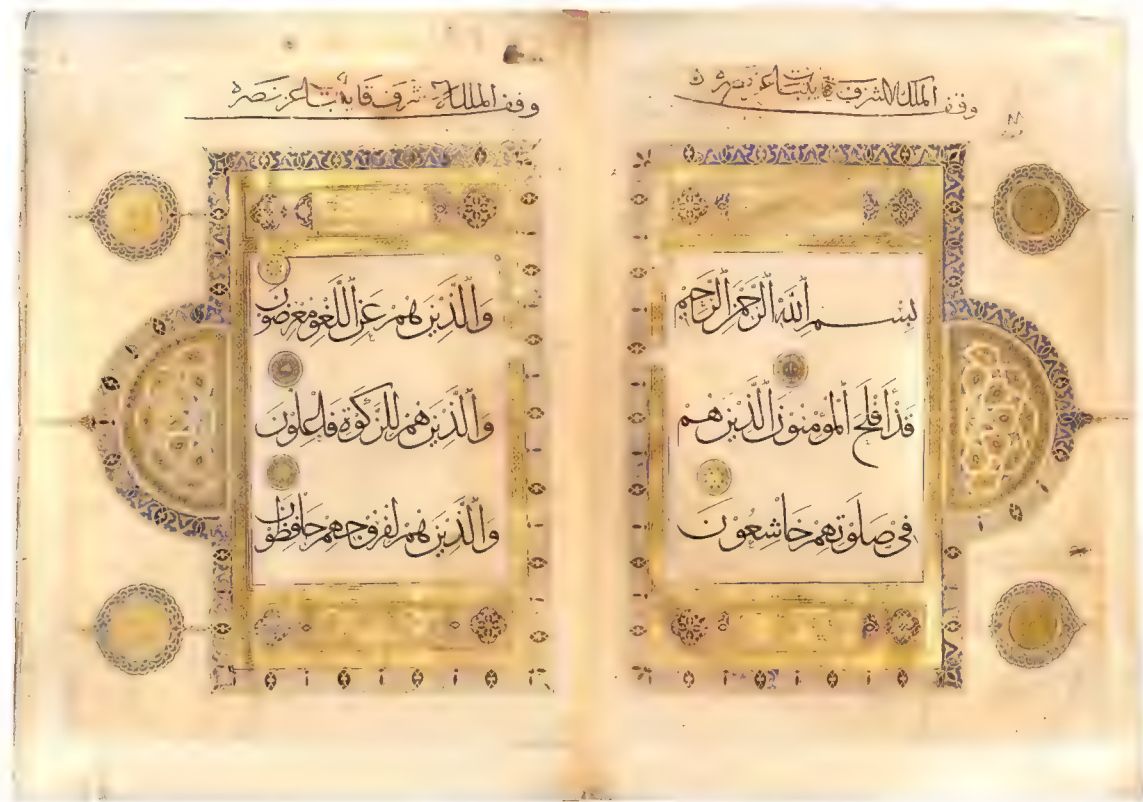 وقف الملك الأشرف قايتباي عز نصره
بسم الله الرحمن الرحيم
قد أفلح المؤمنون الذين هم
في صلوتهم خاشعون
وقف الملك الأشرف قايتباي عز نصره
والذين هم عن اللغو معرضون
والذين هم للزكوة فاعلون
والذين هم لفروجهم حافظون